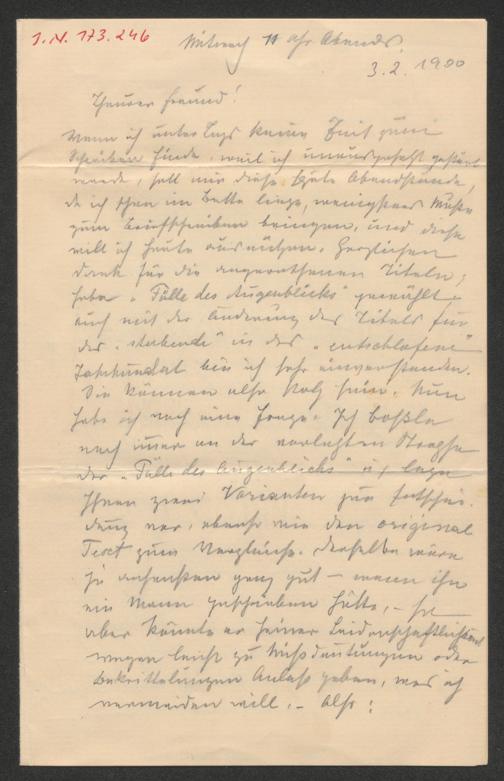 I.N. 173.246
Mittwoch 11 Uhr Abends.
3.2.1900
Theurer Freund!
Wenn ich unter Tags keine Zeit zum
Schreiben finde, weil ich unausgesetzt gestört
werde, soll mir diese späte Abendstunde,
da ich schon im Bette liege, wenigstens Muße
zum Briefschreiben bringen, und diese
will ich heute ausnützen. Herzlichen
Dank für die angerathenen Titeln;
habe „Fülle des Augenblicks" gewählt,
auch mit der Änderung des Titels für
das „sterbende" in das „entschlafene"
Jahrhundert bin ich sehr einverstanden.
Sie können also stolz sein. Nun
habe ich noch eine Frage. Ich bossle
noch immer an der vorletzten Strophe
der „Fülle des Augenblicks" u. lege
Ihnen zwei Varianten zur Entschei-
dung vor, ebenso wie den original
Text zum Vergleiche. Derselbe wäre
ja ganz gut – wenn ihn
ein Mann geschrieben hätte, – so
aber könnte er seiner Leidenschaftlichkeit
wegen leicht zu Missdeutungen oder
Bekrittelungen Anlass geben, was ich
vermeiden will. – Also: